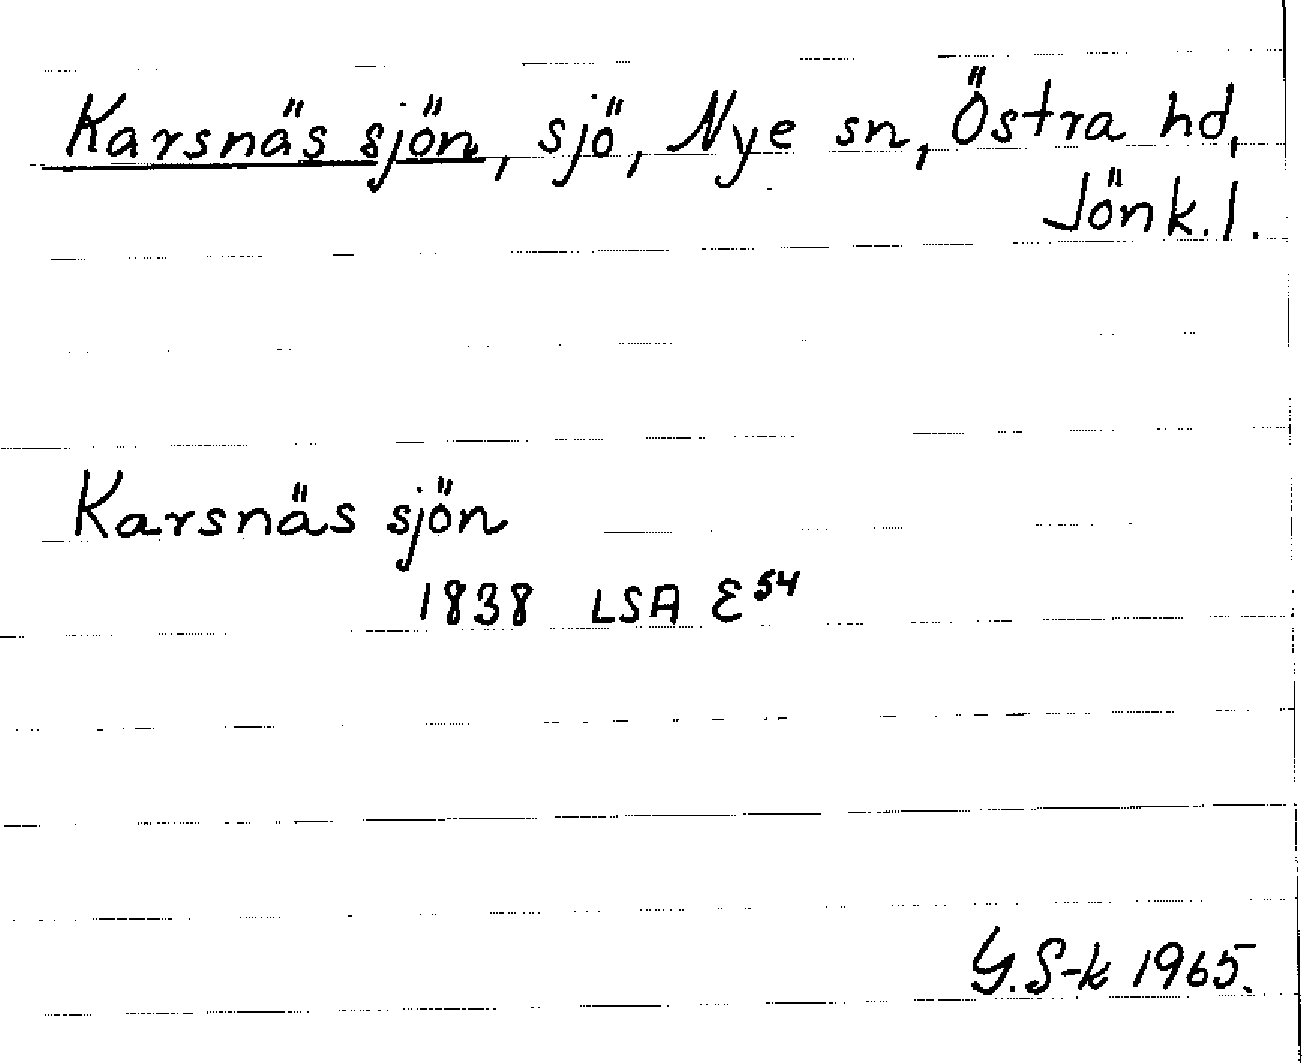 Karsnäs sjön, sjö, Nye sn, Östra hd,
Jönk.l.
Karsnäs sjön
1838 LSA E54
G.S-k 1965.